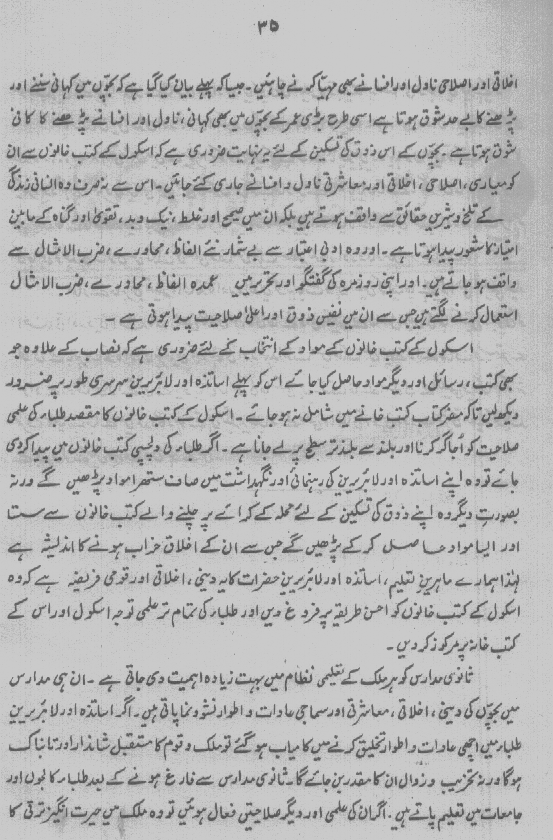 ۳۵
اخلاقی اور اصلاحی ناول اور افسانے بھی مہیّا کرنے چاہئیں ۔ جیسا کہ پہلے بیان کیا گیا ہے کہ بچّوں میں کہانی سننے اور
پڑھنے کا بے حد شوق ہوتا ہے اسی طرح بڑی عمر کے بچّوں میں بھی کہانی ، ناول اور افسانے پڑھنے کا کافی
شوق ہوتا ہے ۔ بچّوں کے اس ذوق کی تسکین کے لئے یہ نہایت ضروری ہے کہ اسکول کے کتب خانوں سے ان
کو معیاری ، اصلاحی ، اخلاقی اور معاشرتی ناول و افسانے جاری کئے جائیں ۔ اس سے نہ صرف وہ انسانی زندگی
کے تلخ و شیریں حقائق سے واقف ہوتے ہیں بلکہ ان میں صحیح اور غلط ، نیک و بد ، تقویٰ اور گناہ کے مابین
امتیاز کا شعور پیدا ہوتا ہے ۔ اور وہ ادبی اعتبار سے بے شمار نئے الفاظ ، محاورے ، ضرب الامثال سے
واقف ہو جاتے ہیں ۔ اور اپنی روزمرہ کی گفتگو اور تحریر میں عمدہ الفاظ ، محاورے ، ضرب الامثال
استعمال کرنے لگتے ہیں جس سے ان میں نفیس ذوق اور اعلیٰ صلاحیت پیدا ہوتی ہے ۔
اسکول کے کتب خانوں کے مواد کے انتخاب کے لئے ضروری ہے کہ نصاب کے علاوہ جو
بھی کتب ، رسائل اور دیگر مواد حاصل کیا جائے اس کو پہلے اساتذہ اور لائبریرین سرسری طور پر ضرور
دیکھ لیں تاکہ مضر کتاب کتب خانے میں شامل نہ ہو جائے ۔ اسکول کے کتب خانوں کا مقصد طلباء کی علمی
صلاحیت کو اُجاگر کرنا اور بلند سے بلند تر سطح پر لے جانا ہے ۔ اگر طلباء کی دلچسپی کتب خانوں میں پیدا کر دی
جائے تو وہ اپنے اساتذہ اور لائبریرین کی رہنمائی اور نگہداشت میں صاف ستھرا مواد پڑھیں گے ورنہ
بصورت دیگر وہ اپنے ذوق کی تسکین کے لئے محلہ کے کرائے پر چلنے والے کتب خانوں سے سستا
اور ایسا مواد حاصل کر کے پڑھیں گے جس سے ان کے اخلاق خراب ہونے کا اندیشہ ہے
لہٰذا ہمارے ماہرین تعلیم ، اساتذہ اور لائبریرین حضرات کا یہ دینی ، اخلاقی اور قومی فریضہ ہے کہ وہ
اسکول کے کتب خانوں کو احسن طریقہ پر فروغ دیں اور طلباء کی تمام تر علمی توجہ اسکول اور اس کے
کتب خانہ پر مرکوز کر دیں ۔
ثانوی مدارس کو ہر ملک کے تعلیمی نظام میں بہت زیادہ اہمیت دی جاتی ہے ۔ ان ہی مدارس
میں بچّوں کی دینی ، اخلاقی ، معاشرتی اور سماجی عادات و اطوار نشو و نما پاتی ہیں ۔ اگر اساتذہ اور لائبریرین
طلباء میں اچھی عادات و اطوار تخلیق کرنے میں کامیاب ہو گئے تو ملک و قوم کا مستقبل شاندار اور تابناک
ہو گا ورنہ تخریب و زوال ان کا مقدر بن جائے گا ۔ ثانوی مدارس سے فارغ ہونے کے بعد طلباء کالجوں اور
جامعات میں تعلیم پاتے ہیں ۔ اگر ان کی علمی اور دیگر صلاحیتیں فعال ہوئیں تو وہ ملک میں حیرت انگیز ترقی کا